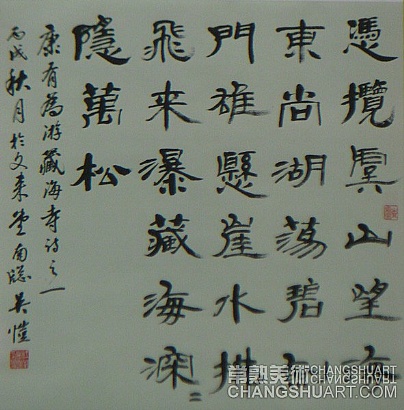 憑攬虞山望
東尚湖蕩碧劍
門雄懸崖水
飛来瀑藏海深〻
隱萬松
康有為游藏海寺詩之一
丙戌秋月於文来堂南牕吳愷
常熟美術 CHANGSHUART